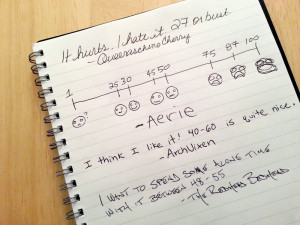 It hurts. I hate it. 27 or bust.
-QueeraschinoCherry
1 25 30 45 50 75 87 100
-Aerie
I think I like it! 40-60 is quite nice.
-ArchVixen
I WANT TO SPEND SOME ALONE TIME
WITH IT BETWEEN 48-55
-THE REDHEAD BEDHEAD